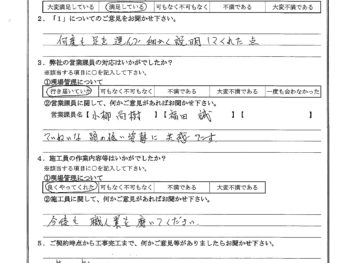 大変満足している 満足している 可もなく不可もなく 不満である 大変不満である
2. 「1」についてのご意見をお聞かせ下さい。
何度も足を運んで細かく説明してくれた点
3. 弊社の営業課員の対応はいかがでしたか？
※該当する項目に○を記入して下さい。
①現場管理について
行き届いていた 可もなく不可もなく 不満である 大変不満である 一度も会わなかった
②営業課員に関して、何かご意見があればお聞かせ下さい。
営業課員名【小柳 尚樹 】【福田 誠 】【 】
ていねいな 腰の低い営業に 共感です。
4. 施工員の作業内容等はいかがでしたか？
※該当する項目に○を記入して下さい。
①現場管理について
良くやってくれた 可もなく不可もなく 不満である 大変不満である
②施工員に関して、何かご意見があればお聞かせ下さい。
今後も 職人業を磨いてください
5. ご契約時点から工事完工まで、何かご意見等がありましたらお聞かせ下さい。